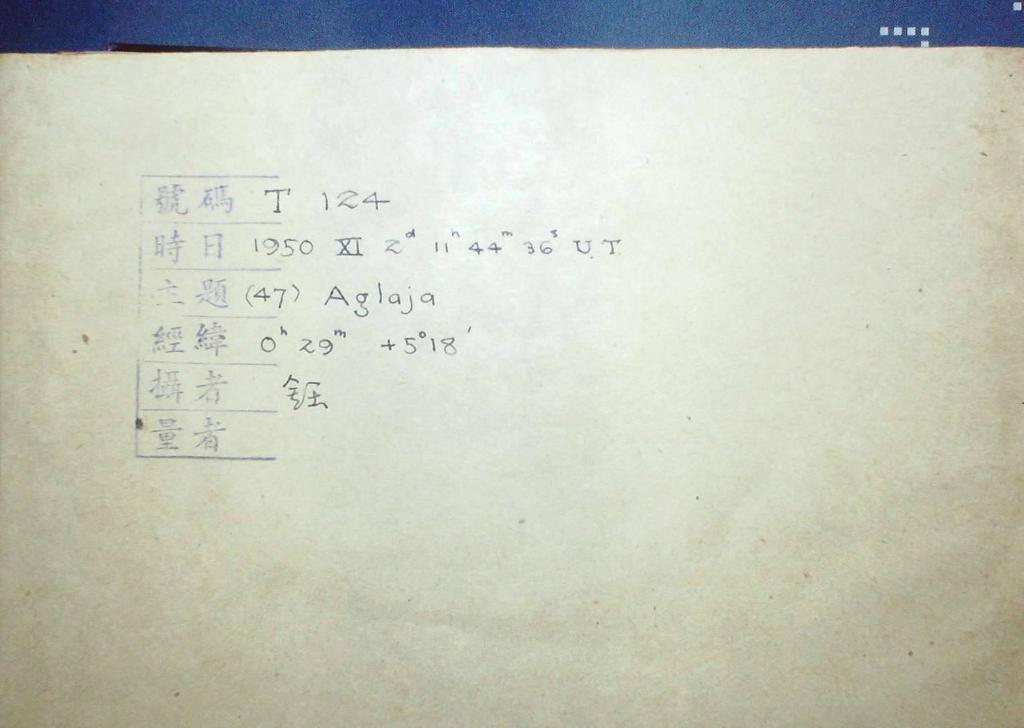 號碼 T 124
時日 1950 XI 2ᵈ 11ʰ 44ᵐ 36ˢ U.T.
主題 (47) Aglaja
經緯 0ʰ 29ᵐ +5°18′
攝者 鈺
量者